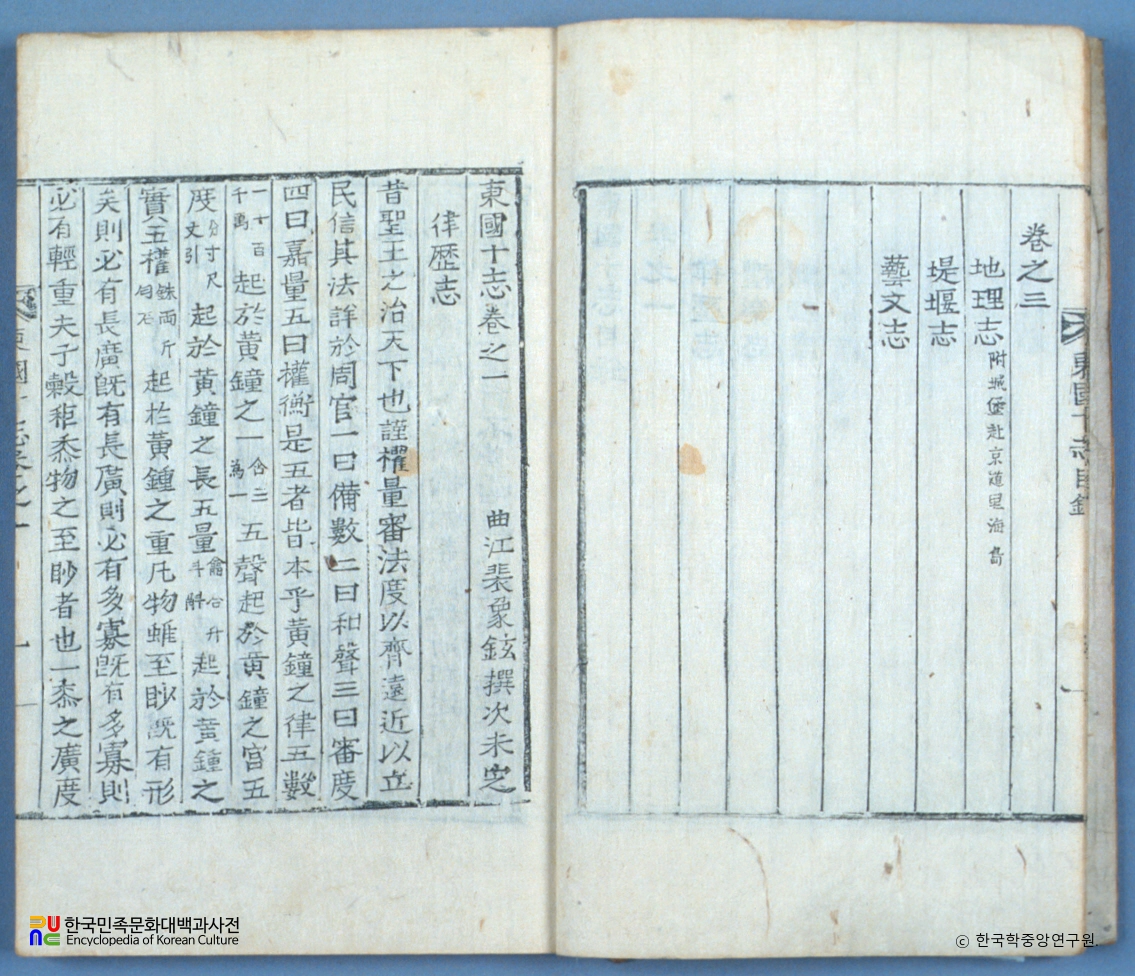 卷之三
地理志 附城堡赴京道里海島
堤堰志
藝文志
東國十志目錄
東國十志卷之一 曲江裴象鉉撰次未定
律歷志
昔聖王之治天下也謹權量審法度以齊遠近以立
民信其法詳於周官一曰備數二曰和聲三曰審度
四曰嘉量五曰權衡是五者皆本乎黃鐘之律五數
一十百千萬起於黃鐘之一含三爲一五聲起於黃鐘之宮五
度分寸尺丈引起於黃鐘之長五量龠合升斗斛起於黃鐘之
實五權銖兩斤勻石起於黃鍾之重凡物雖至眇旣有形
矣則必有長廣旣有長廣則必有多寡旣有多寡則
必有輕重夫子穀秬黍物之至眇者也一黍之廣度
東國十志卷之一
한국민족문화대백과사전
Encyclopedia of Korean Culture
© 한국학중앙연구원.